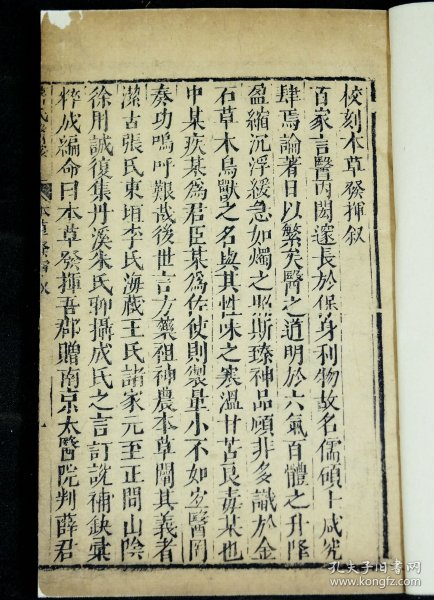 校刻本草發揮叙
百家言醫丙閎邃長於保身利物故名儒碩士咸究
肆焉論著日以繁矣醫之道明於六氣百體之升降
盈縮沉浮緩急如燭之照斯臻神品顧非多識於金
石草木鳥獸之名與其性味之寒溫甘苦良毒某也
中某疾某爲君臣某爲佐使則製量小不如宐醫罔
奏功嗚呼艱哉後世言方藥祖神農本草闡其義者
潔古張氏東垣李氏海藏王氏諸家元至正間山陰
徐用誠復集丹溪朱氏聊攝成氏之言訂說補缺彙
粹成編命曰本草發揮吾郡贈南京太醫院判薛君
本草發揮叙
孔夫子旧书网
www.kongfz.com